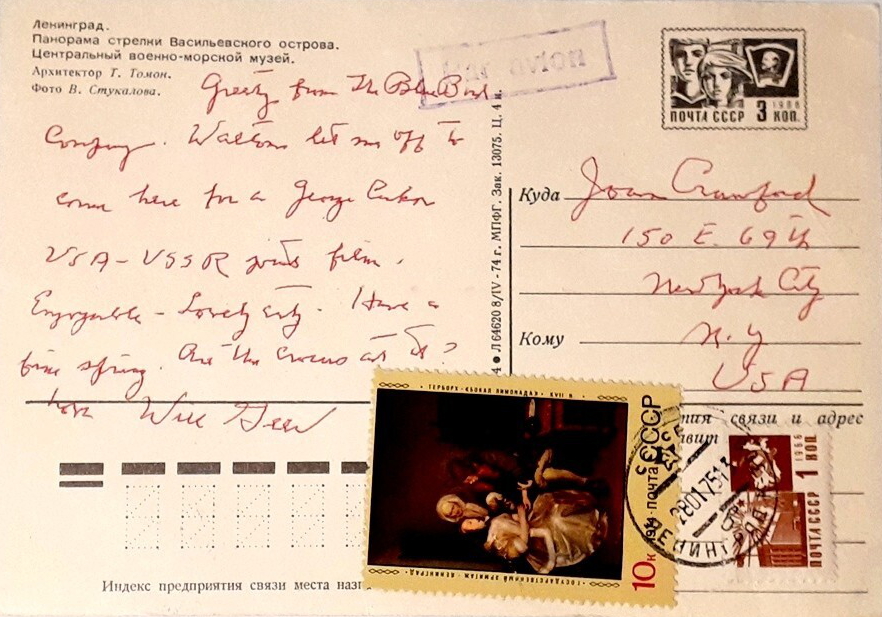 Ленинград.
Панорама стрелки Васильевского острова.
Центральный военно-морской музей.
Архитектор Т. Томон.
Фото В. Стукалова.
Par avion
Greetings from The Blue Bird
Company. Waltons let me off to
come here for a George Cukor
USA-USSR joint film.
Enjoyable - Lovely city. Have a
fine spring. Are the crocus out yet?
Love Will Geer
ПОЧТА СССР 3 КОП.
1966
Л 64620 8/IV-74 г. МПФГ. Зак. 13075. Ц. 4 к.
Куда Joan Crawford
150 E. 69th
New York City
Кому N.Y
USA
связи и адрес
ТЕРБОРХ «БОКАЛ ЛИМОНАДА» XVII в.
ГОСУДАРСТВЕННЫЙ ЭРМИТАЖ · ЛЕНИНГРАД
10к 1974 · ПОЧТА СССР
280175
ЛЕНИНГРАД
1966
1 КОП.
ПОЧТА СССР
Индекс предприятия связи места